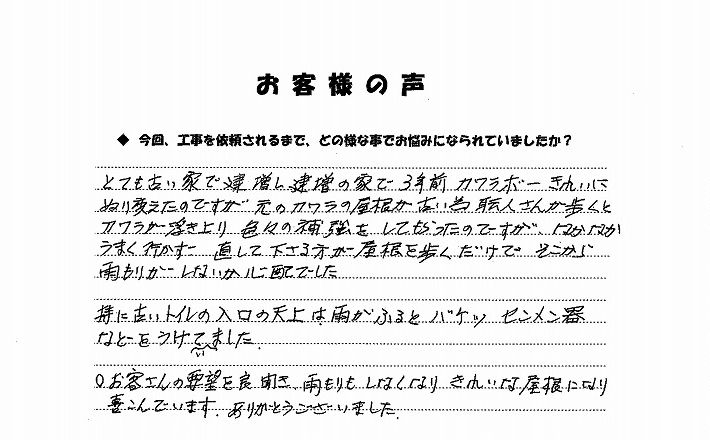 お客様の声
◆ 今回、工事を依頼されるまで、どの様な事でお悩みになられていましたか?
とても古い家で建増し建増の家で 3年前 カワラボー きれいに
ぬり変えたのですが 元のカワラの屋根が古い為 職人さんが歩くと
カワラが浮き上り 色々の補強を してもらったのですが なかなか
うまく行かず 直して下さる方が屋根を歩くだけで そこから
雨もりが しないか心配でした
特に古いトイレの入口の天上は雨がふると バケツ センメン器
などをうけていました
○お客さんの要望を良く聞き 雨もりも しなくなり きれいな屋根になり
喜こんでいます。ありがとうございました。